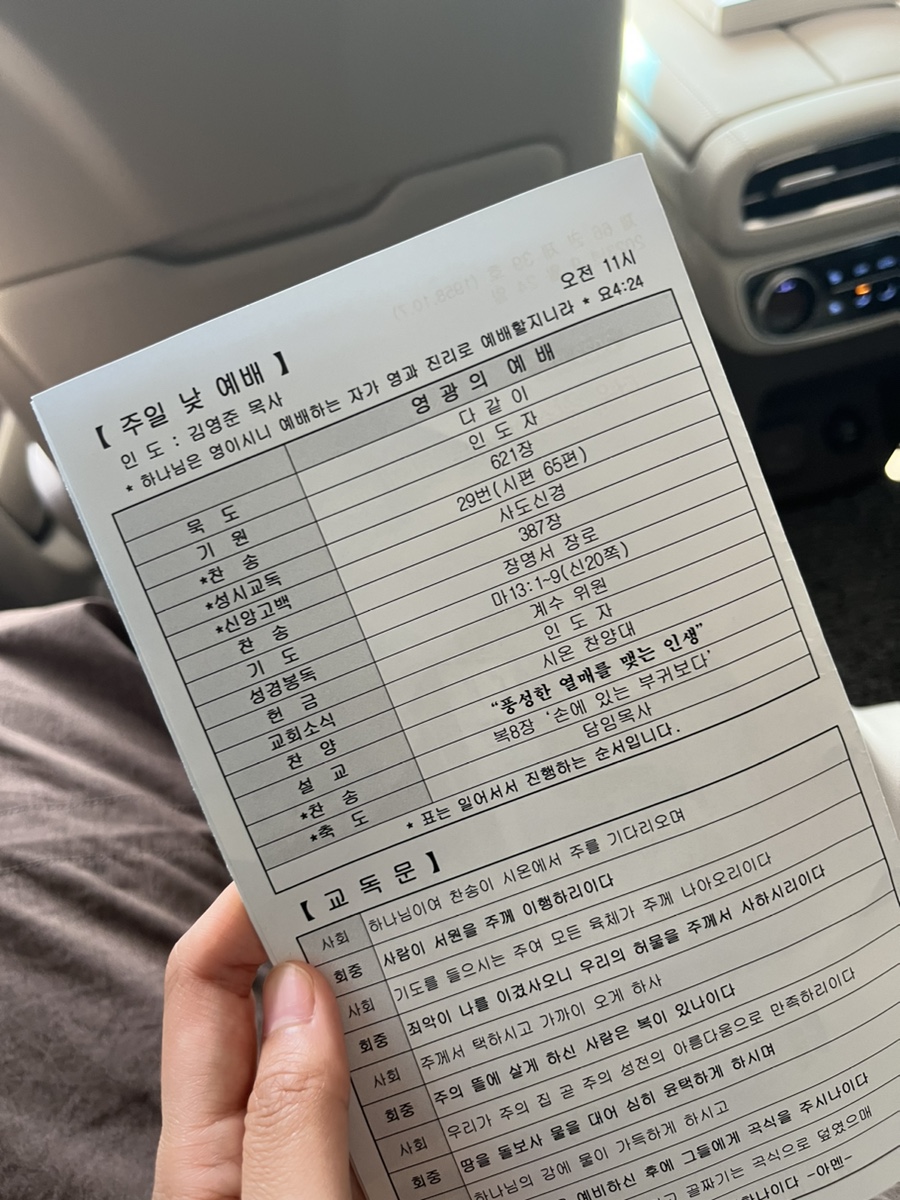 【 주일 낮 예배 】 오전 11시
인 도 : 김영준 목사
* 하나님은 영이시니 예배하는 자가 영과 진리로 예배할지니라 * 요4:24
영 광 의 예 배
묵 도 다 같 이
기 원 인 도 자
*찬 송 621장
*성시교독 29번(시편 65편)
*신앙고백 사도신경
찬 송 387장
기 도 장명서 장로
성경봉독 마13:1~9(신20쪽)
헌 금 계수 위원
교회소식 인 도 자
찬 양 시온 찬양대
설 교 “풍성한 열매를 맺는 인생”
*찬 송 복8장 ‘손에 있는 부귀보다’
*축 도 담임목사
* 표는 일어서서 진행하는 순서입니다.
【 교 독 문 】
사회 하나님이여 찬송이 시온에서 주를 기다리오며
회중 사람이 서원을 주께 이행하리이다
사회 기도를 들으시는 주여 모든 육체가 주께 나아오리이다
회중 죄악이 나를 이겼사오니 우리의 허물을 주께서 사하시리이다
사회 주께서 택하시고 가까이 오게 하사
회중 주의 뜰에 살게 하신 사람은 복이 있나이다
사회 우리가 주의 집 곧 주의 성전의 아름다움으로 만족하리이다
회중 땅을 돌보사 물을 대어 심히 윤택하게 하시며
하나님의 강에 물이 가득하게 하시고
예비하신 후에 그들에게 곡식을 주시나이다
골짜기는 곡식으로 덮였으매
-아멘-